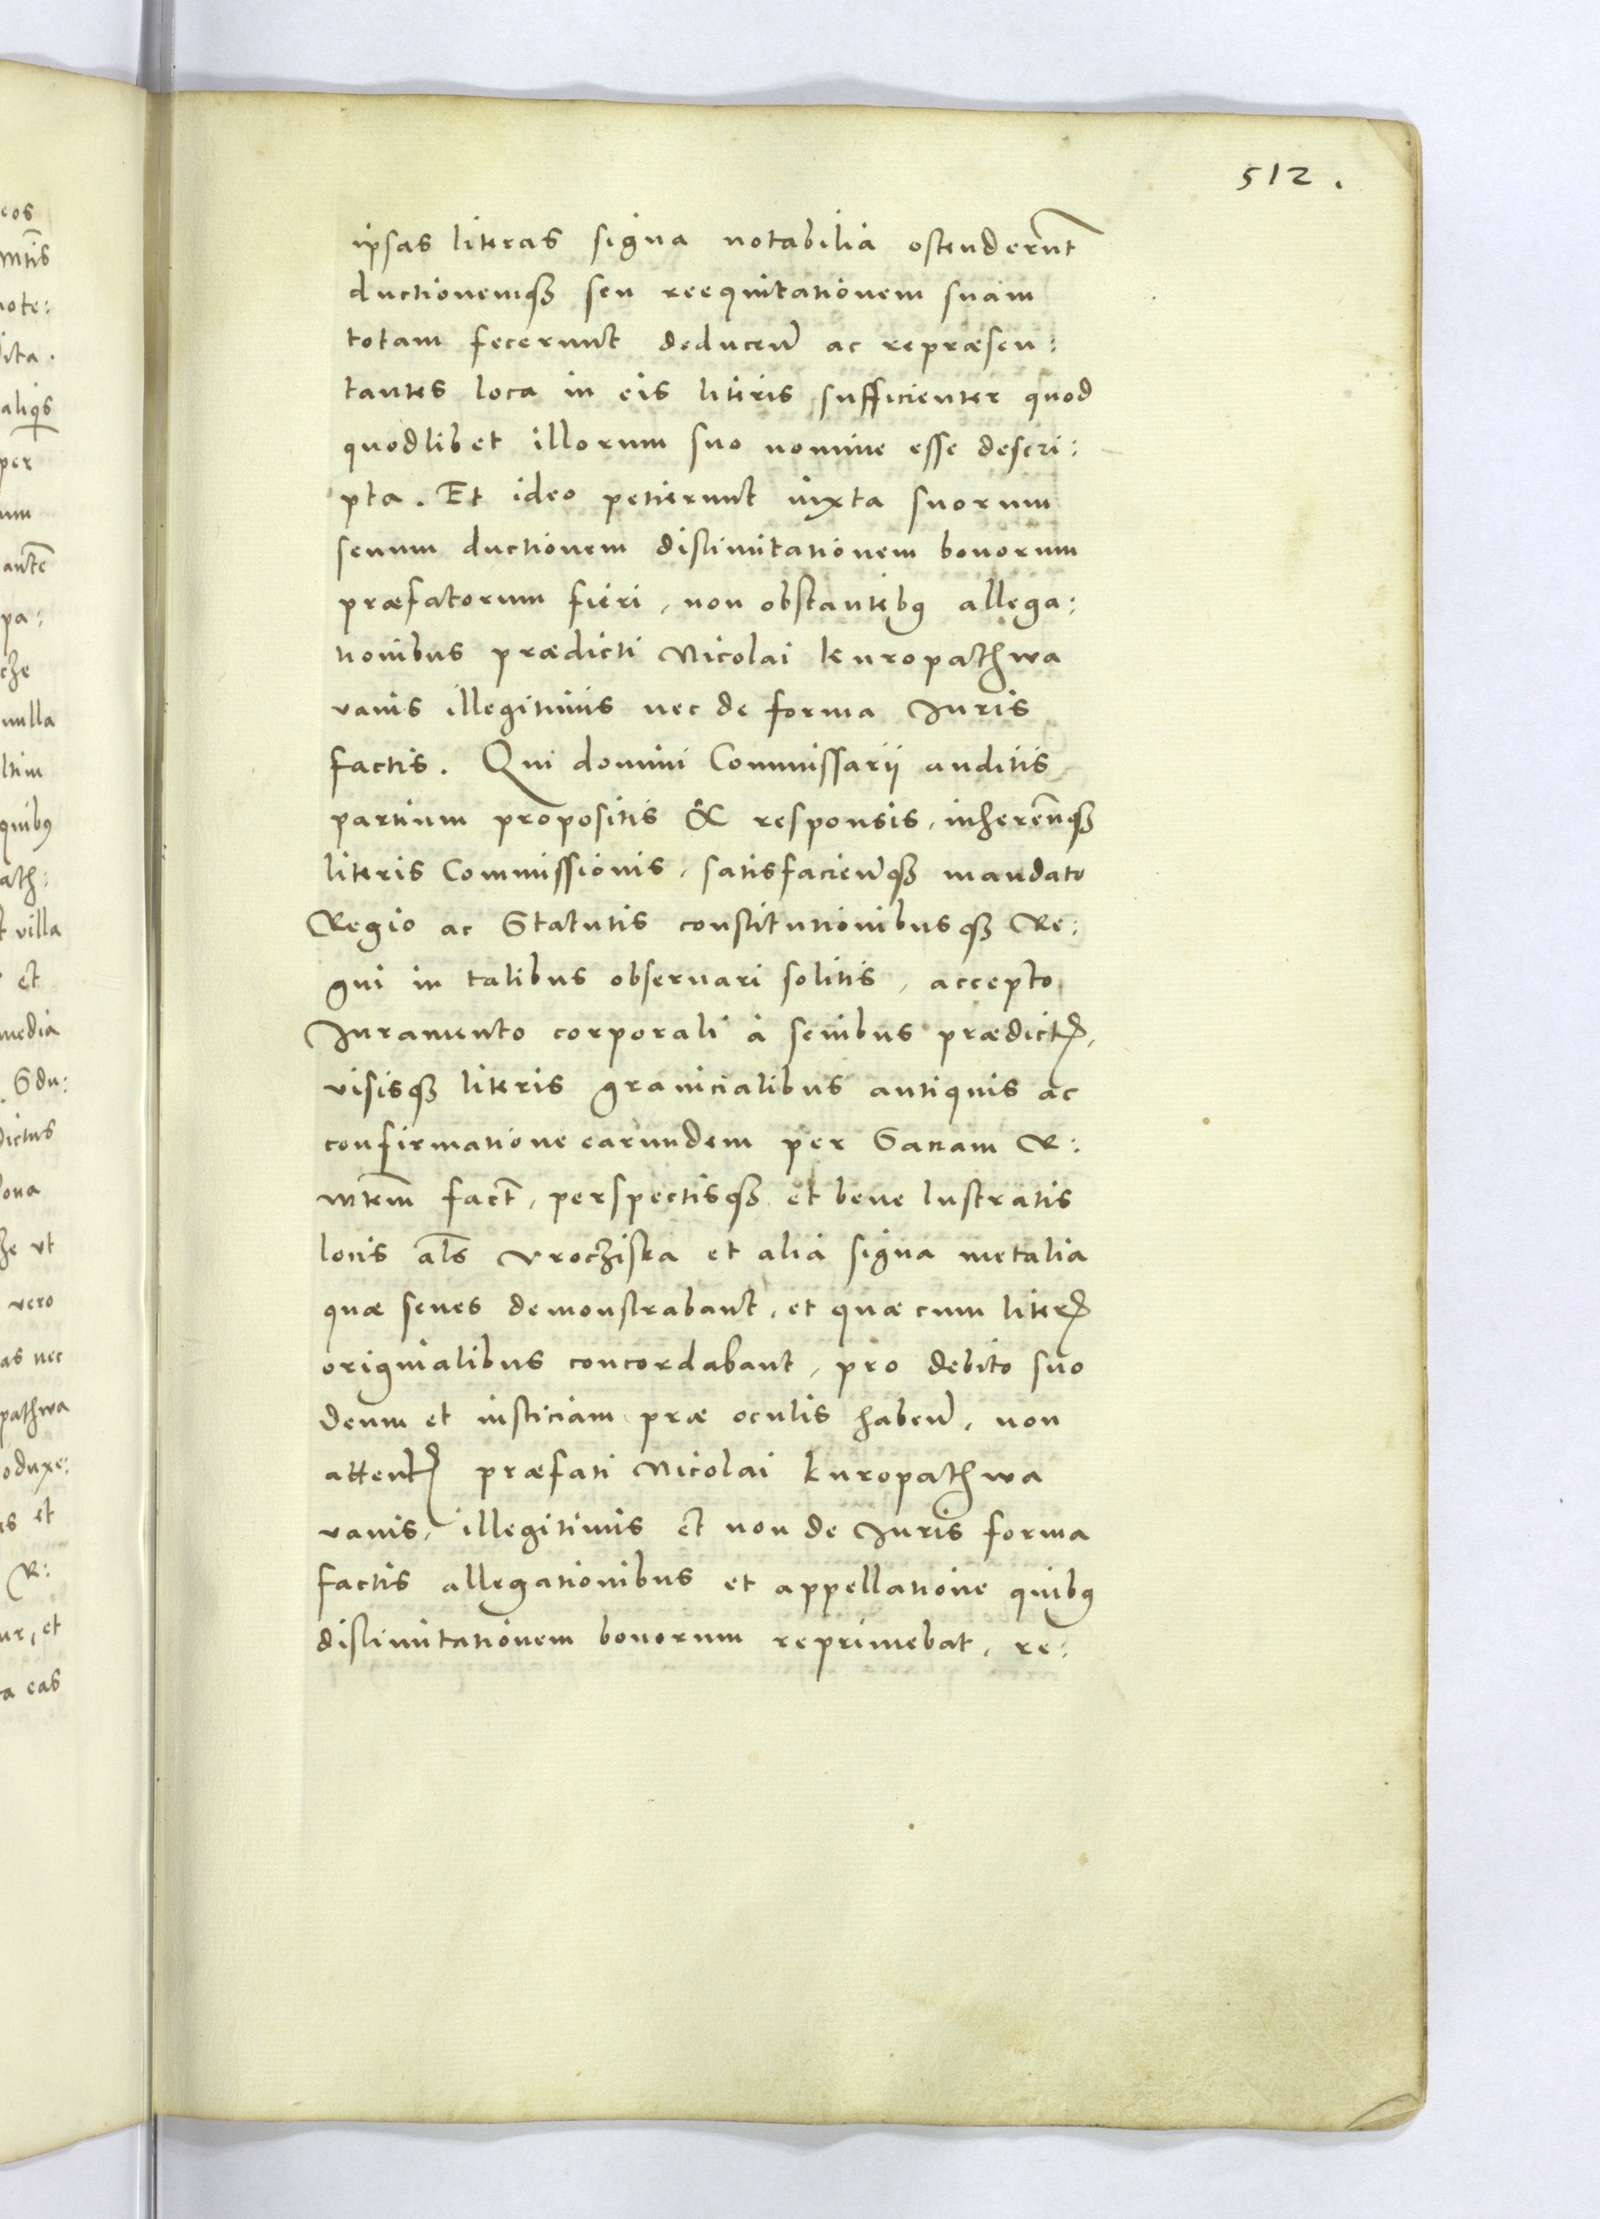 512.
ipsas literas signa notabilia ostenderūt
ductionemqꝫ seu reequitationem suam
totam fecerunt deducen̄ ac repræsen:
tantes loca in eis literis sufficienter quod
quodlibet illorum suo nomine esse descri:
pta. Et ideo petierunt iuxta suorum
senum ductionem dislimitationem bonorum
præfatorum fieri, non obstantibꝰ allega:
tionibus prædicti Nicolai Kuropathwa
vanis illegitimis nec de forma Iuris
factis. Qui domini Commissarii auditis
partium propositis & responsis, inheren̄qꝫ
literis Commissionis, satisfacien̄qꝫ mandato
Regio ac Statutis constitutionibusqꝫ Re:
gni in talibus obseruari solitis, accepto
Iuramento corporali à senibus prædictꝭ,
visisqꝫ literis granicialibus antiquis ac
confirmatione earundem per Sacram R:
Mtem̄ fact̄, perspectisqꝫ et bene lustratis
locis als̄ vroczÿska et alia signa metalia
quæ senes demonstrabant, et quæ cum literꝭ
originalibus concordabant, pro debito suo
deum et iusticiam præ oculis haben̄, non
attentꝭ præfati Nicolai Kuropathwa
vanis, illegitimis et non de Iuris forma
factis allegationibus et appellatione quibꝰ
dislimitationem bonorum reprimebat, re: